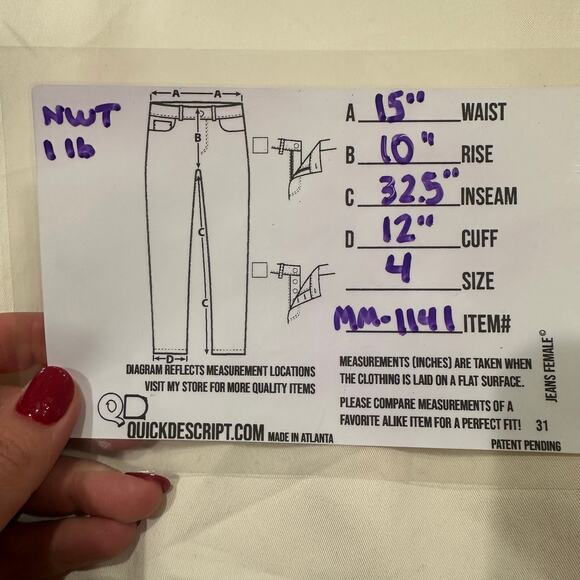 NWT
1 lb
A A
B
C
C
D
A 15" WAIST
B 10" RISE
C 32.5" INSEAM
D 12" CUFF
4 SIZE
MM-1141 ITEM#
DIAGRAM REFLECTS MEASUREMENT LOCATIONS
VISIT MY STORE FOR MORE QUALITY ITEMS
QD
QUICKDESCRIPT.COM MADE IN ATLANTA
MEASUREMENTS (INCHES) ARE TAKEN WHEN
THE CLOTHING IS LAID ON A FLAT SURFACE.
PLEASE COMPARE MEASUREMENTS OF A
FAVORITE ALIKE ITEM FOR A PERFECT FIT! 31
PATENT PENDING
JEANS FEMALE©